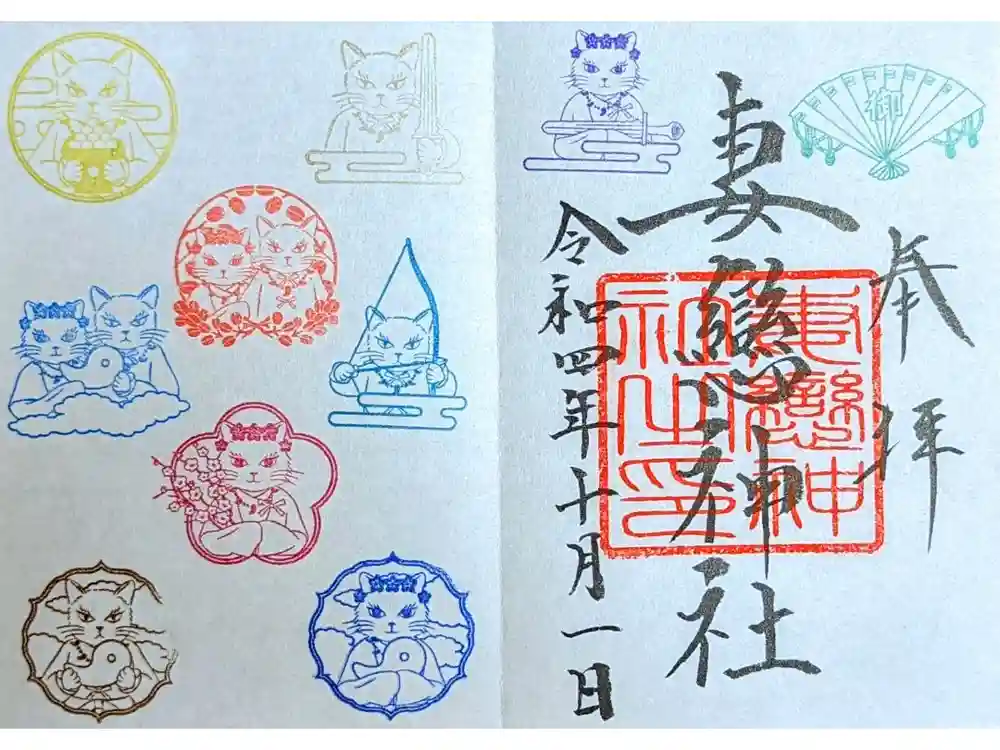 御
奉拝
妻戀神社
妻戀神
社之印
令和四年十月一日